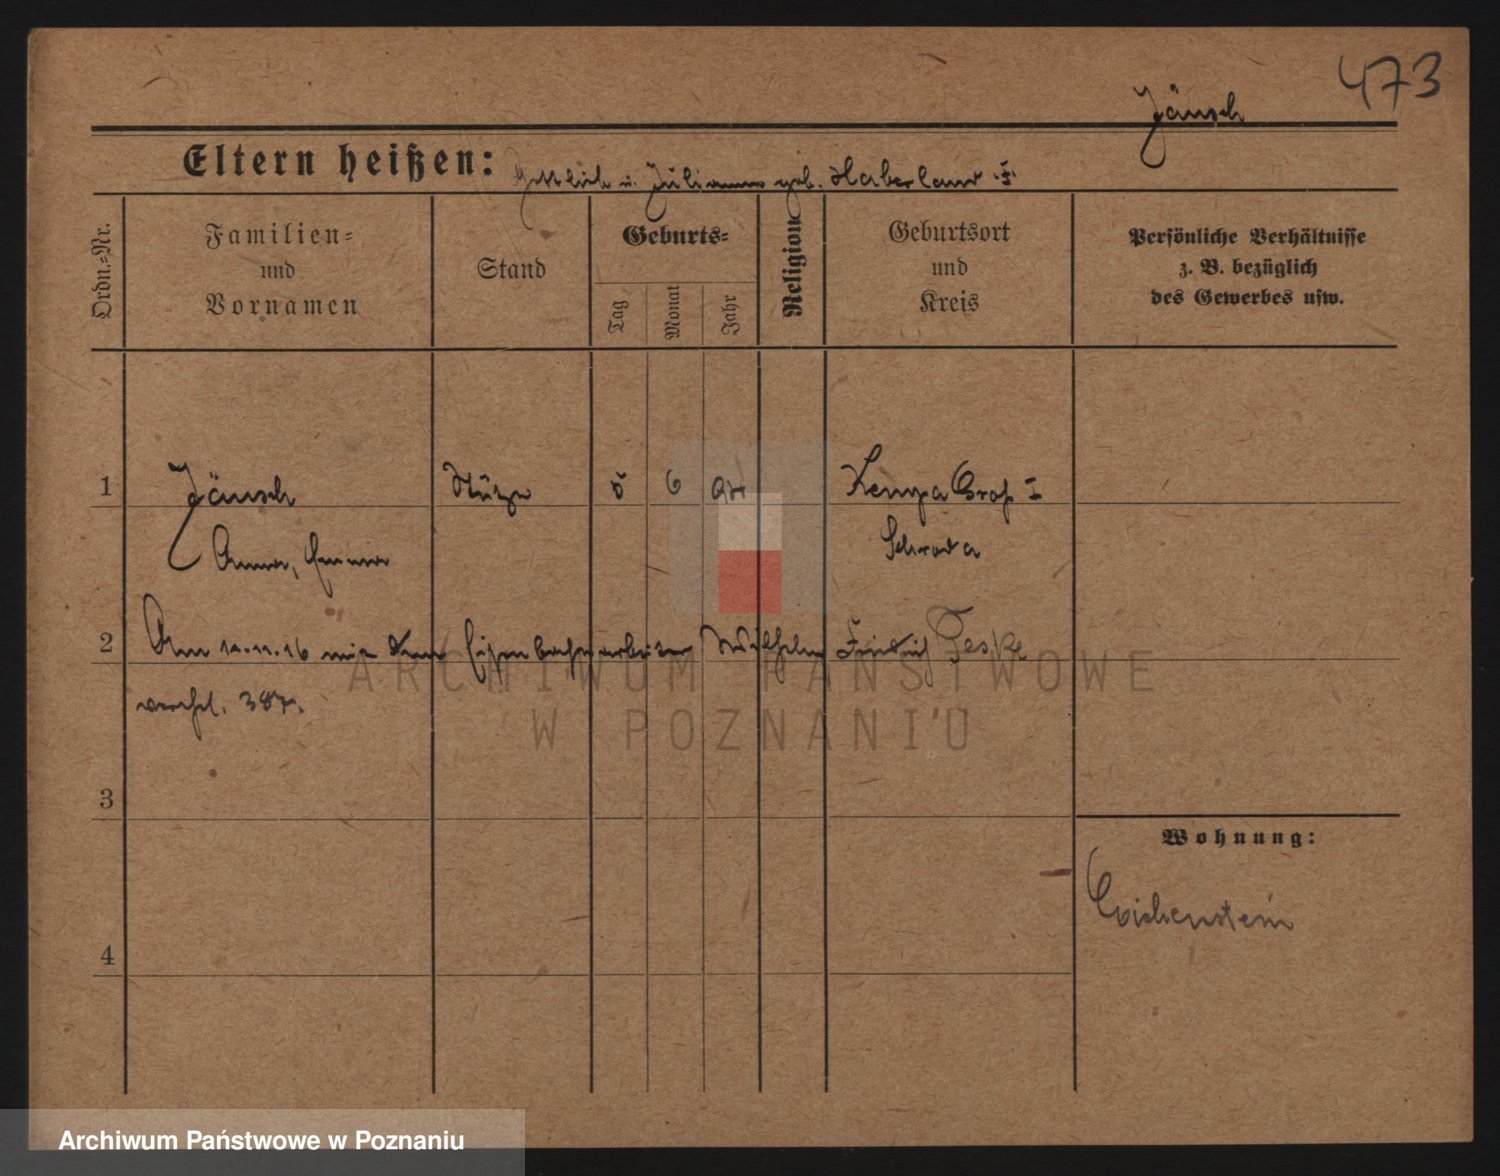 473
Jänsch
Eltern heißen: Gottlieb u. Julianna geb. Haberland
Ordn.-Nr.
Familien-
und
Vornamen
Stand
Geburts-
Tag
Monat
Jahr
Religion
Geburtsort
und
Kreis
Persönliche Verhältnisse
z. B. bezüglich
des Gewerbes usw.
1 Jänsch Stütze 5 6 Kempa Groß I
Anna, Emma Schroda
2 Am 11.11.16 mit dem Eisenbahnarbeiter Wilhelm Friedrich Jeske
verehel. 387.
ARCHIWUM PAŃSTWOWE
W POZNANIU
3
Wohnung:
Eichenstein
4
Archiwum Państwowe w Poznaniu